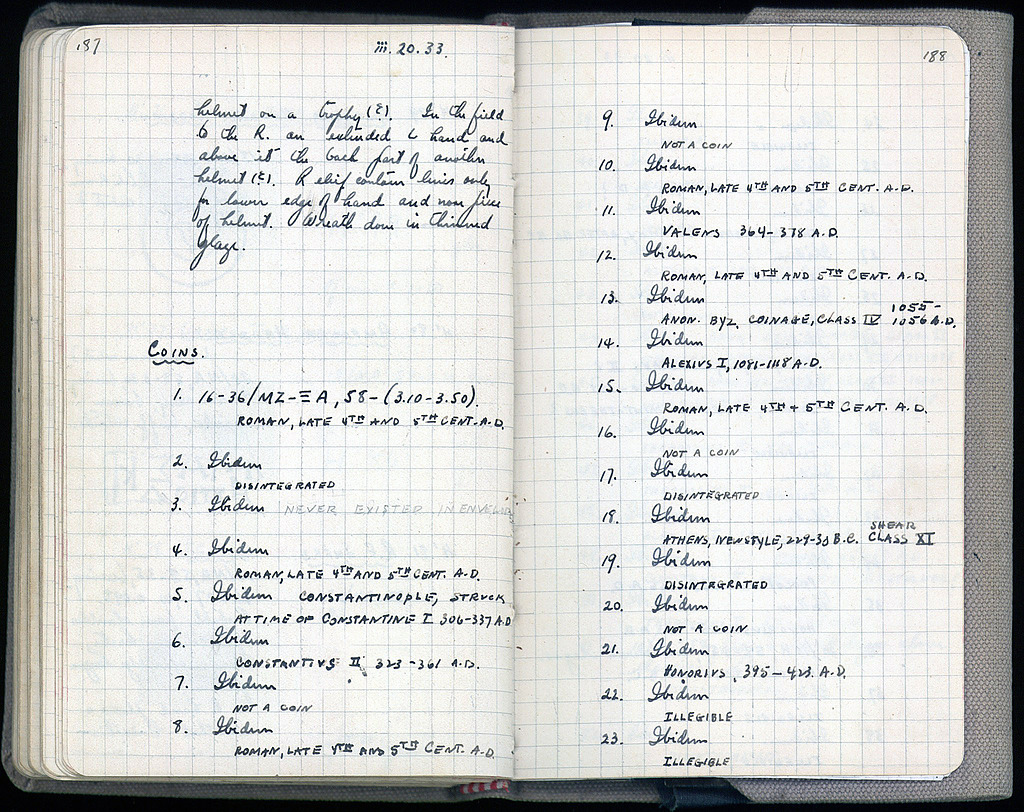 187
iii. 20. 33.
helmet on a trophy (?). In the field
to the R. an extended L hand and
above it the back part of another
helmet (?). Relief contour lines only
for lower edge of hand and nose piece
of helmet. Wreath done in thinned
glaze.
COINS.
1. 16-36/MZ-ΞA, 58-(3.10-3.50).
ROMAN, LATE 4TH AND 5TH CENT. A.D.
2. Ibidem
DISINTEGRATED
3. Ibidem NEVER EXISTED IN ENVELOPE
4. Ibidem
ROMAN, LATE 4TH AND 5TH CENT. A.D.
5. Ibidem CONSTANTINOPLE, STRUCK
AT TIME OF CONSTANTINE I 306-337 A.D
6. Ibidem
CONSTANTIUS II, 323-361 A.D.
7. Ibidem
NOT A COIN
8. Ibidem
ROMAN, LATE 4TH AND 5TH CENT. A.D.
188
9. Ibidem
NOT A COIN
10. Ibidem
ROMAN, LATE 4TH AND 5TH CENT. A.D.
11. Ibidem
VALENS 364-378 A.D.
12. Ibidem
ROMAN, LATE 4TH AND 5TH CENT. A.D.
13. Ibidem
1055-
ANON. BYZ. COINAGE, CLASS IV 1056 A.D.
14. Ibidem
ALEXIUS I, 1081-1118 A.D.
15. Ibidem
ROMAN, LATE 4TH + 5TH CENT. A.D.
16. Ibidem
NOT A COIN
17. Ibidem
DISINTEGRATED
18. Ibidem
SHEAR
ATHENS, NEW STYLE, 229-30 B.C. CLASS XI
19. Ibidem
DISINTRGRATED
20. Ibidem
NOT A COIN
21. Ibidem
HONORIUS, 395-423 A.D.
22. Ibidem
ILLEGIBLE
23. Ibidem
ILLEGIBLE